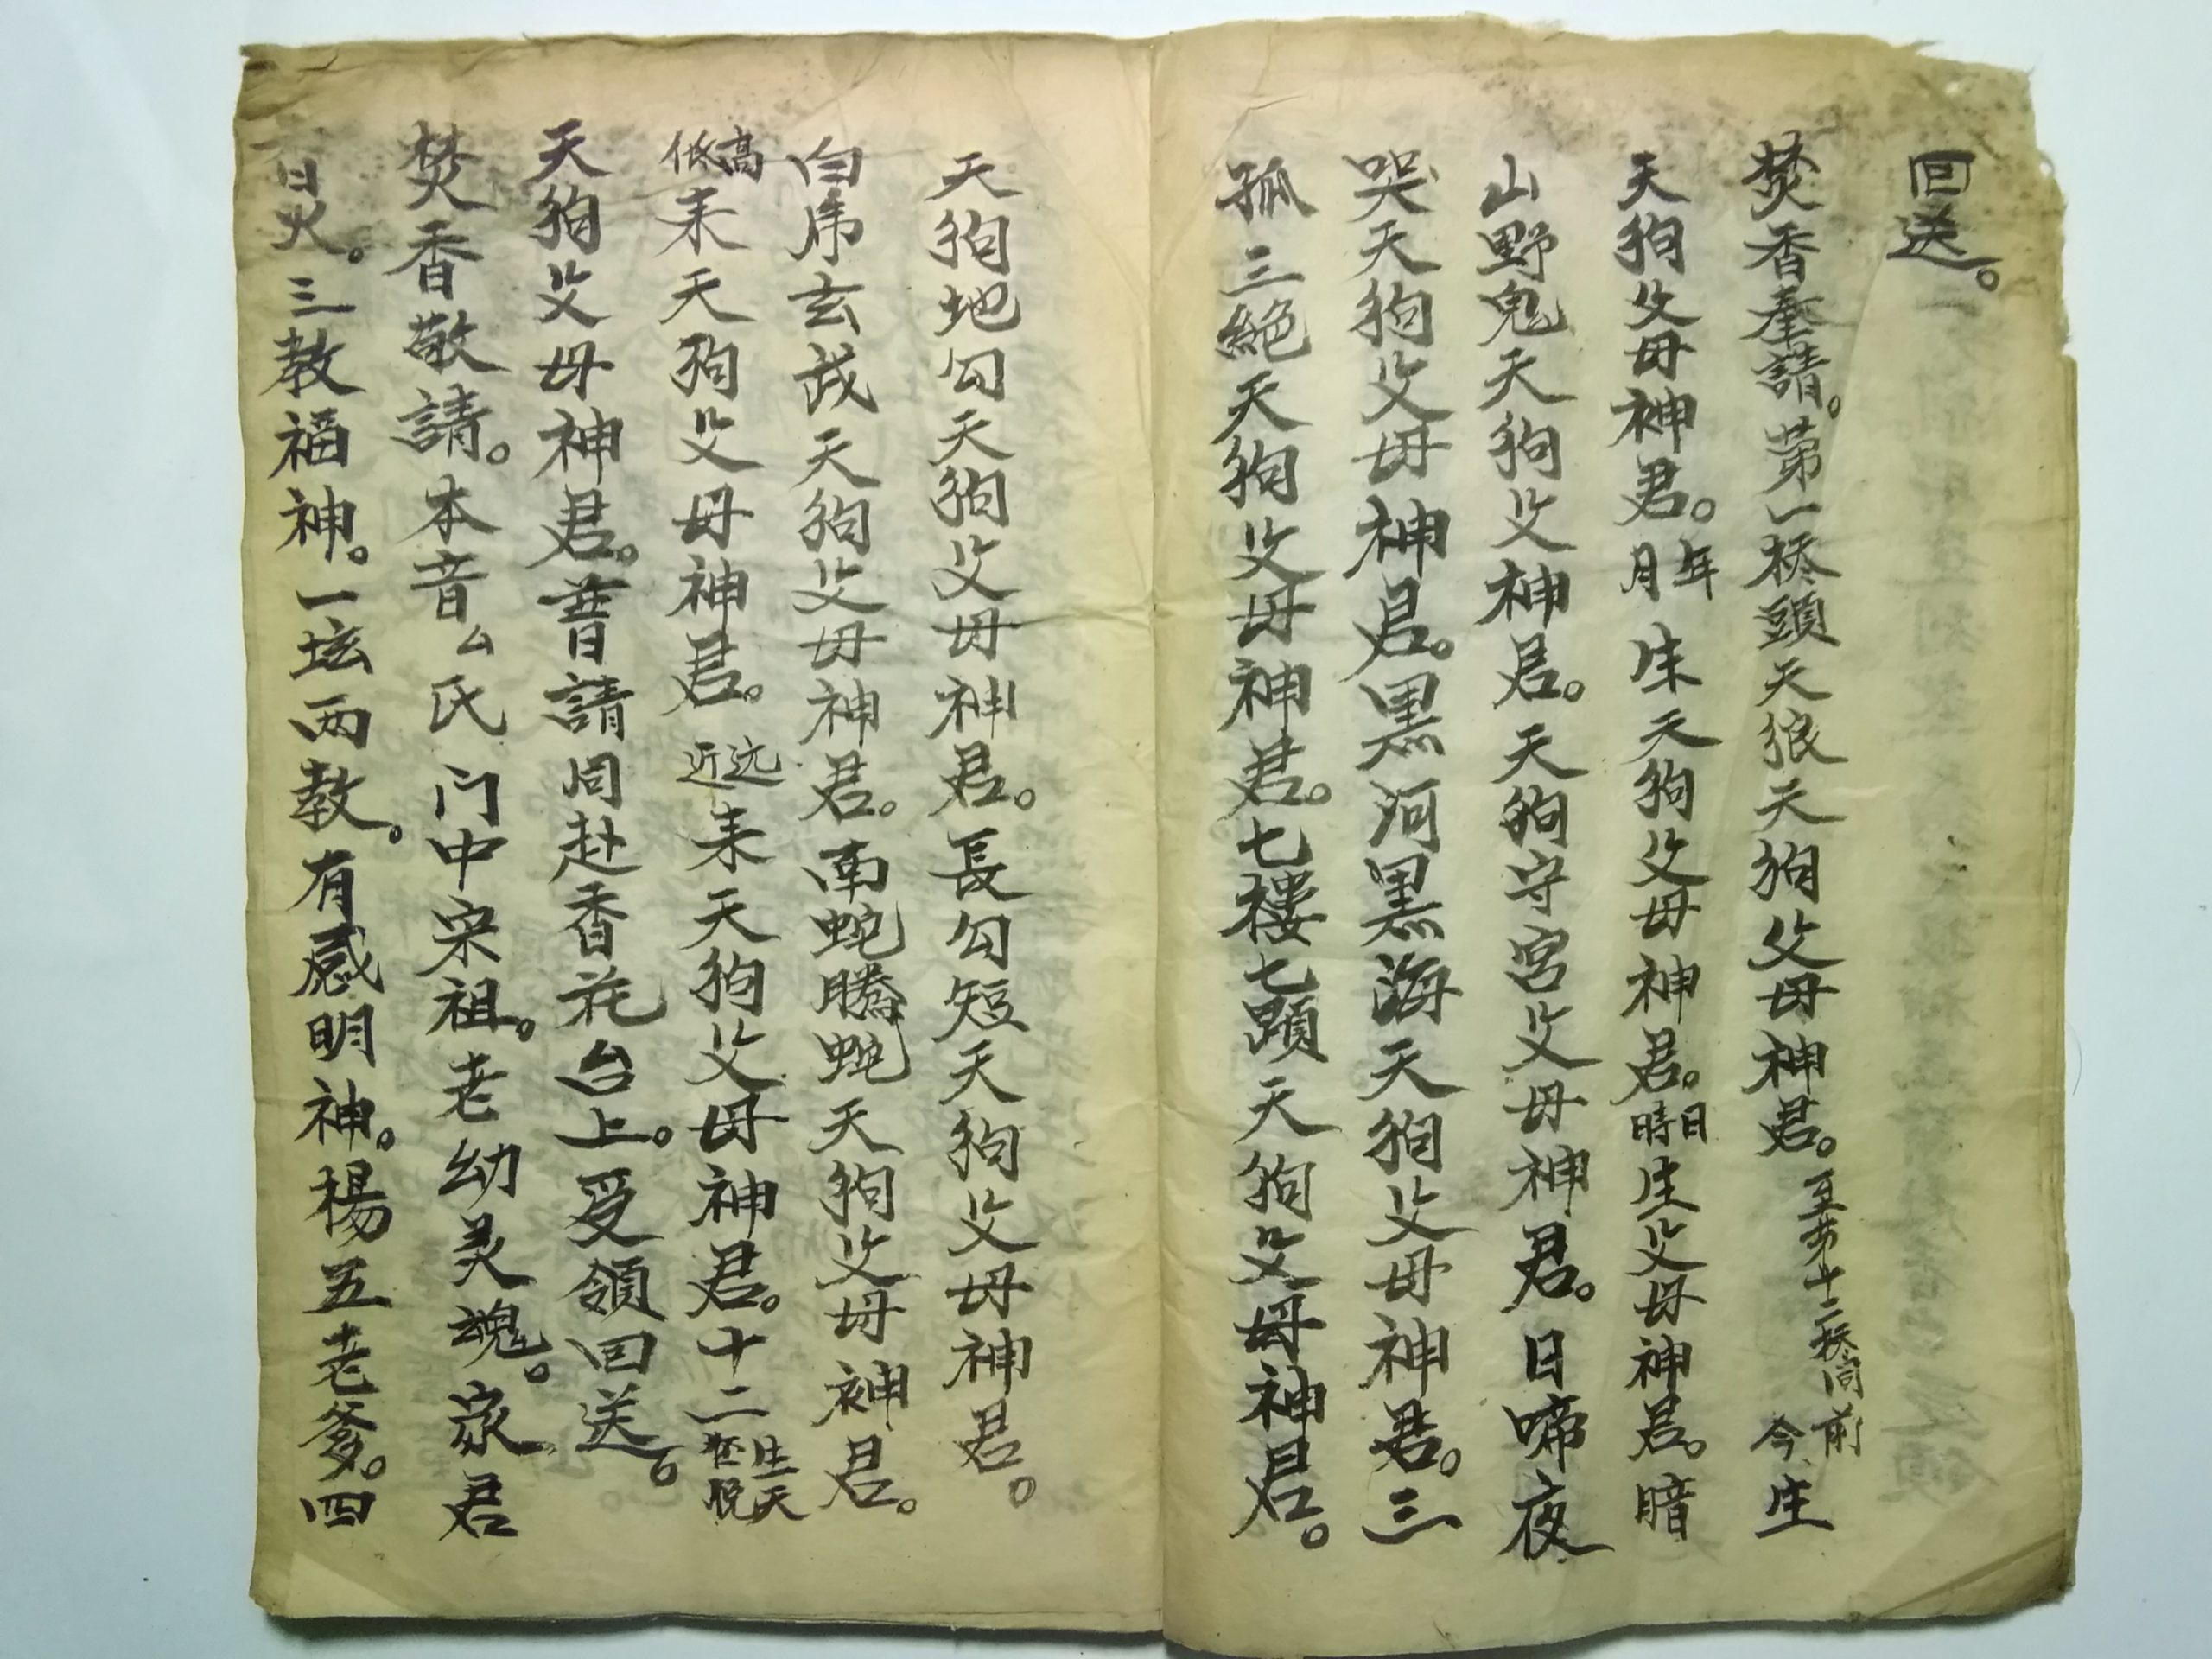 回送。
焚香奉請。第一桥頭天狼天狗父母神君。至第十二桥同前今生
天狗父母神君。年月生天狗父母神君。日時生父母神君。暗
山野鬼天狗父神君。天狗守宮父母神君。日啼夜
哭天狗父母神君。黑河黑海天狗父母神君。三
孤三絕天狗父母神君。七樓七顕天狗父母神君。
天狗地勾天狗父母神君。長勾短天狗父母神君。
白虎玄武天狗父母神君。南蛇騰蛇天狗父母神君。
高低来天狗父母神君。远近来天狗父母神君。十二生天脱
天狗父母神君。普請同赴香花台上。受領回送。
焚香敬請。本音厶氏门中宗祖。老幼灵魂。家君
日火。三教福神。一坛两教。有感明神。楊五老爹。四